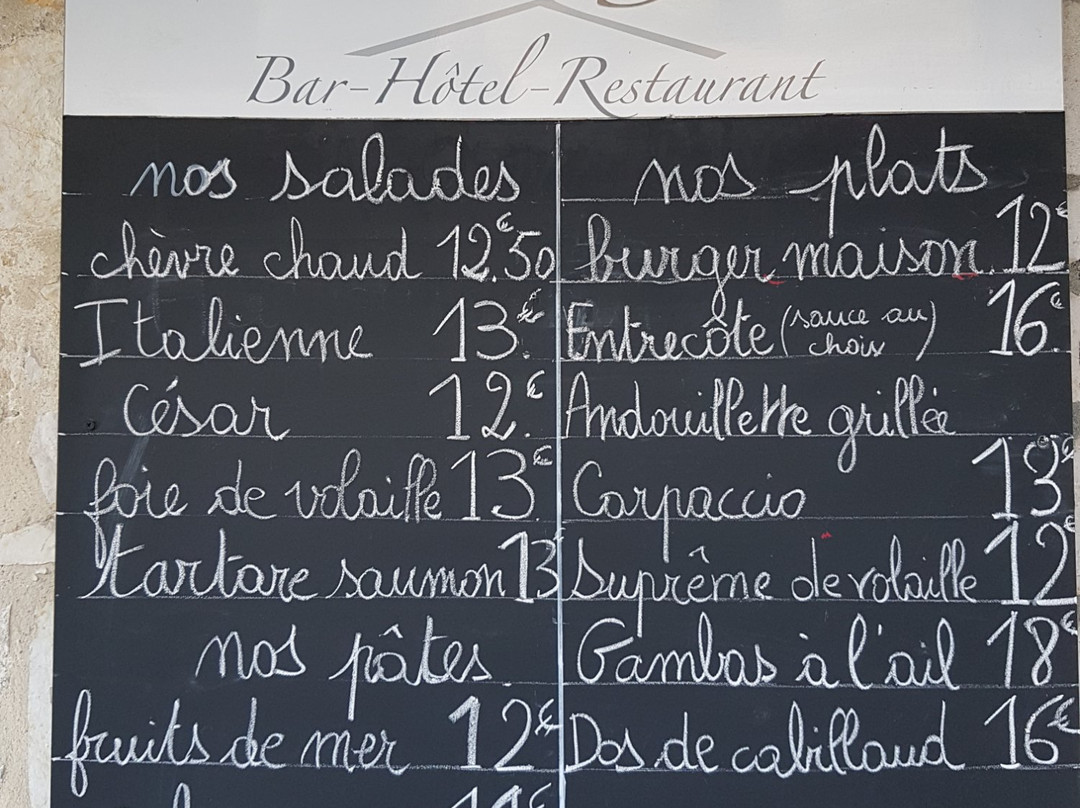 Bar-Hôtel-Restaurant
nos salades
chèvre chaud 12.€50
Italienne 13.€
César 12.€
foie de volaille 13.€
tartare saumon 13
nos pâtes
fruits de mer 12€
nos plats
burger maison 12€
Entrecôte (sauce au choix) 16€
Andouillette grillée
Carpaccio 13€
Suprême de volaille 12€
Gambas à l'ail 18€
Dos de cabillaud 16€